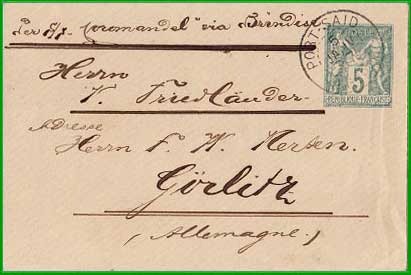 Per S/S "Coromandel" via Brindisi
PORT-SAID
5
REPUBLIQUE FRANCAISE
Herrn
V. Friedländer
Adresse
Herrn F. W. Mersen.
Görlitz
(Allemagne.)